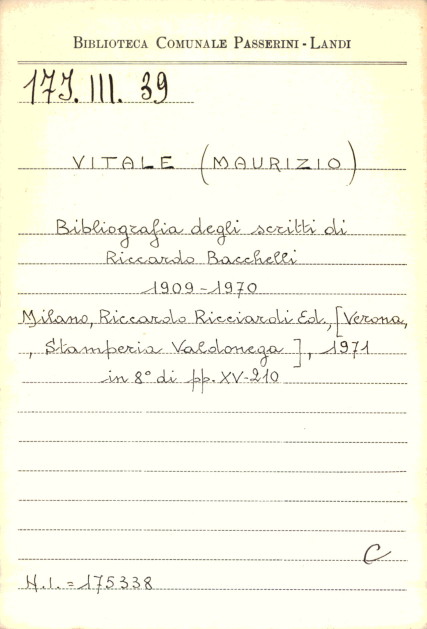 BIBLIOTECA COMUNALE PASSERINI-LANDI
17J. III. 39
VITALE (MAURIZIO)
Bibliografia degli scritti di
Riccardo Bacchelli
1909-1970
Milano, Riccardo Ricciardi Ed., [Verona,
, Stamperia Valdonega], 1971
in 8° di pp. XV-210
C
N.I. = 175338